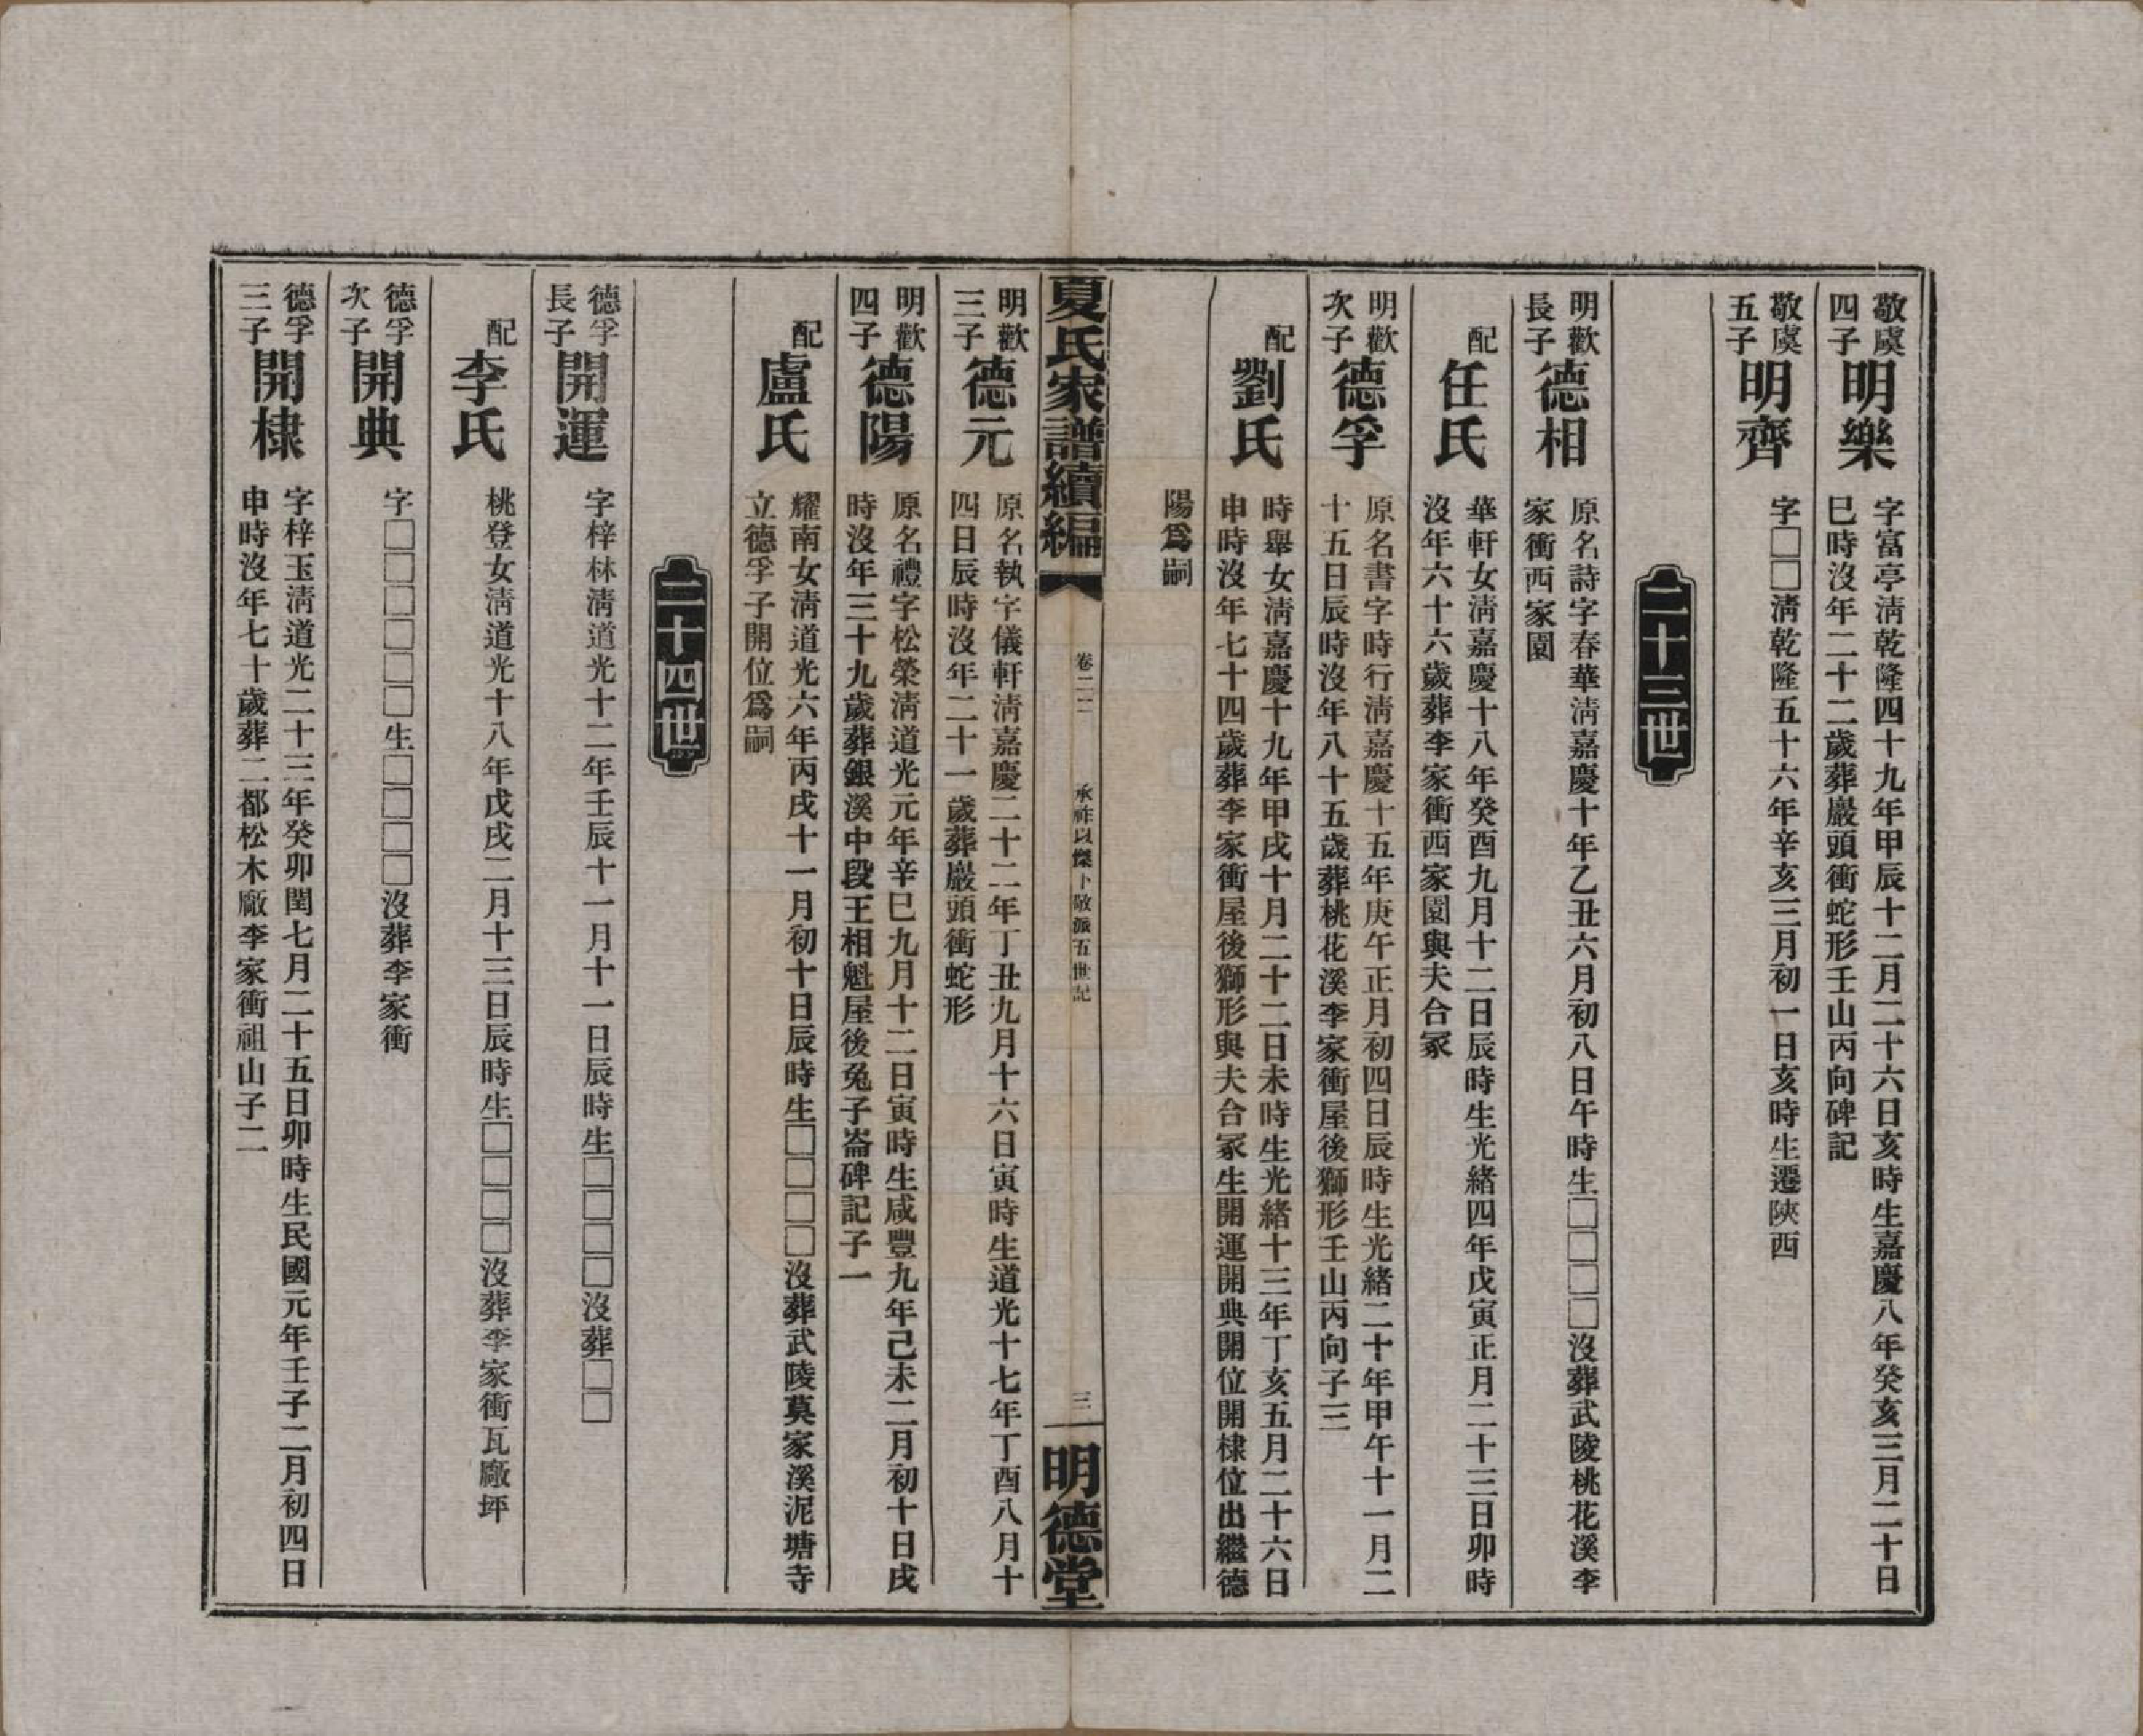 敬虞
四子
明樂
字富亭淸乾隆四十九年甲辰十二月二十六日亥時生嘉慶八年癸亥三月二十日
巳時沒年二十二歲葬巖頭衝蛇形壬山丙向碑記
敬虞
五子
明齊
字□□淸乾隆五十六年辛亥三月初一日亥時生遷陝西
二十三世
明歡
長子
德相
原名詩字春華淸嘉慶十年乙丑六月初八日午時生□□□□沒葬武陵桃花溪李
家衝西家園
配
任氏
華軒女淸嘉慶十八年癸酉九月十二日辰時生光緒四年戊寅正月二十三日卯時
沒年六十六歲葬李家衝西家園與夫合冢
明歡
次子
德孚
原名書字時行淸嘉慶十五年庚午正月初四日辰時生光緒二十年甲午十一月二
十五日辰時沒年八十五歲葬桃花溪李家衝屋後獅形壬山丙向子三
配
劉氏
時舉女淸嘉慶十九年甲戌十月二十二日未時生光緒十三年丁亥五月二十六日
申時沒年七十四歲葬李家衝屋後獅形與夫合冢生開運開典開位開棣位出繼德
陽爲嗣
夏氏家譜續編
卷二二
承祚以傑卜敬派五世記
三
明德堂
明歡
三子
德元
原名執字儀軒淸嘉慶二十二年丁丑九月十六日寅時生道光十七年丁酉八月十
四日辰時沒年二十一歲葬巖頭衝蛇形
明歡
四子
德陽
原名禮字松榮淸道光元年辛巳九月十二日寅時生咸豐九年己未二月初十日戌
時沒年三十九歲葬銀溪中段王相魁屋後兔子崙碑記子一
配
盧氏
耀南女淸道光六年丙戌十一月初十日辰時生□□□□沒葬武陵莫家溪泥塘寺
立德孚子開位爲嗣
二十四世
德孚
長子
開運
字梓林淸道光十二年壬辰十一月十一日辰時生□□□□沒葬□□
配
李氏
桃登女淸道光十八年戊戌二月十三日辰時生□□□□沒葬李家衝瓦廠坪
德孚
次子
開典
字□□□□□□生□□□□沒葬李家衝
德孚
三子
開棣
字梓玉淸道光二十三年癸卯閏七月二十五日卯時生民國元年壬子二月初四日
申時沒年七十歲葬二都松木廠李家衝祖山子二